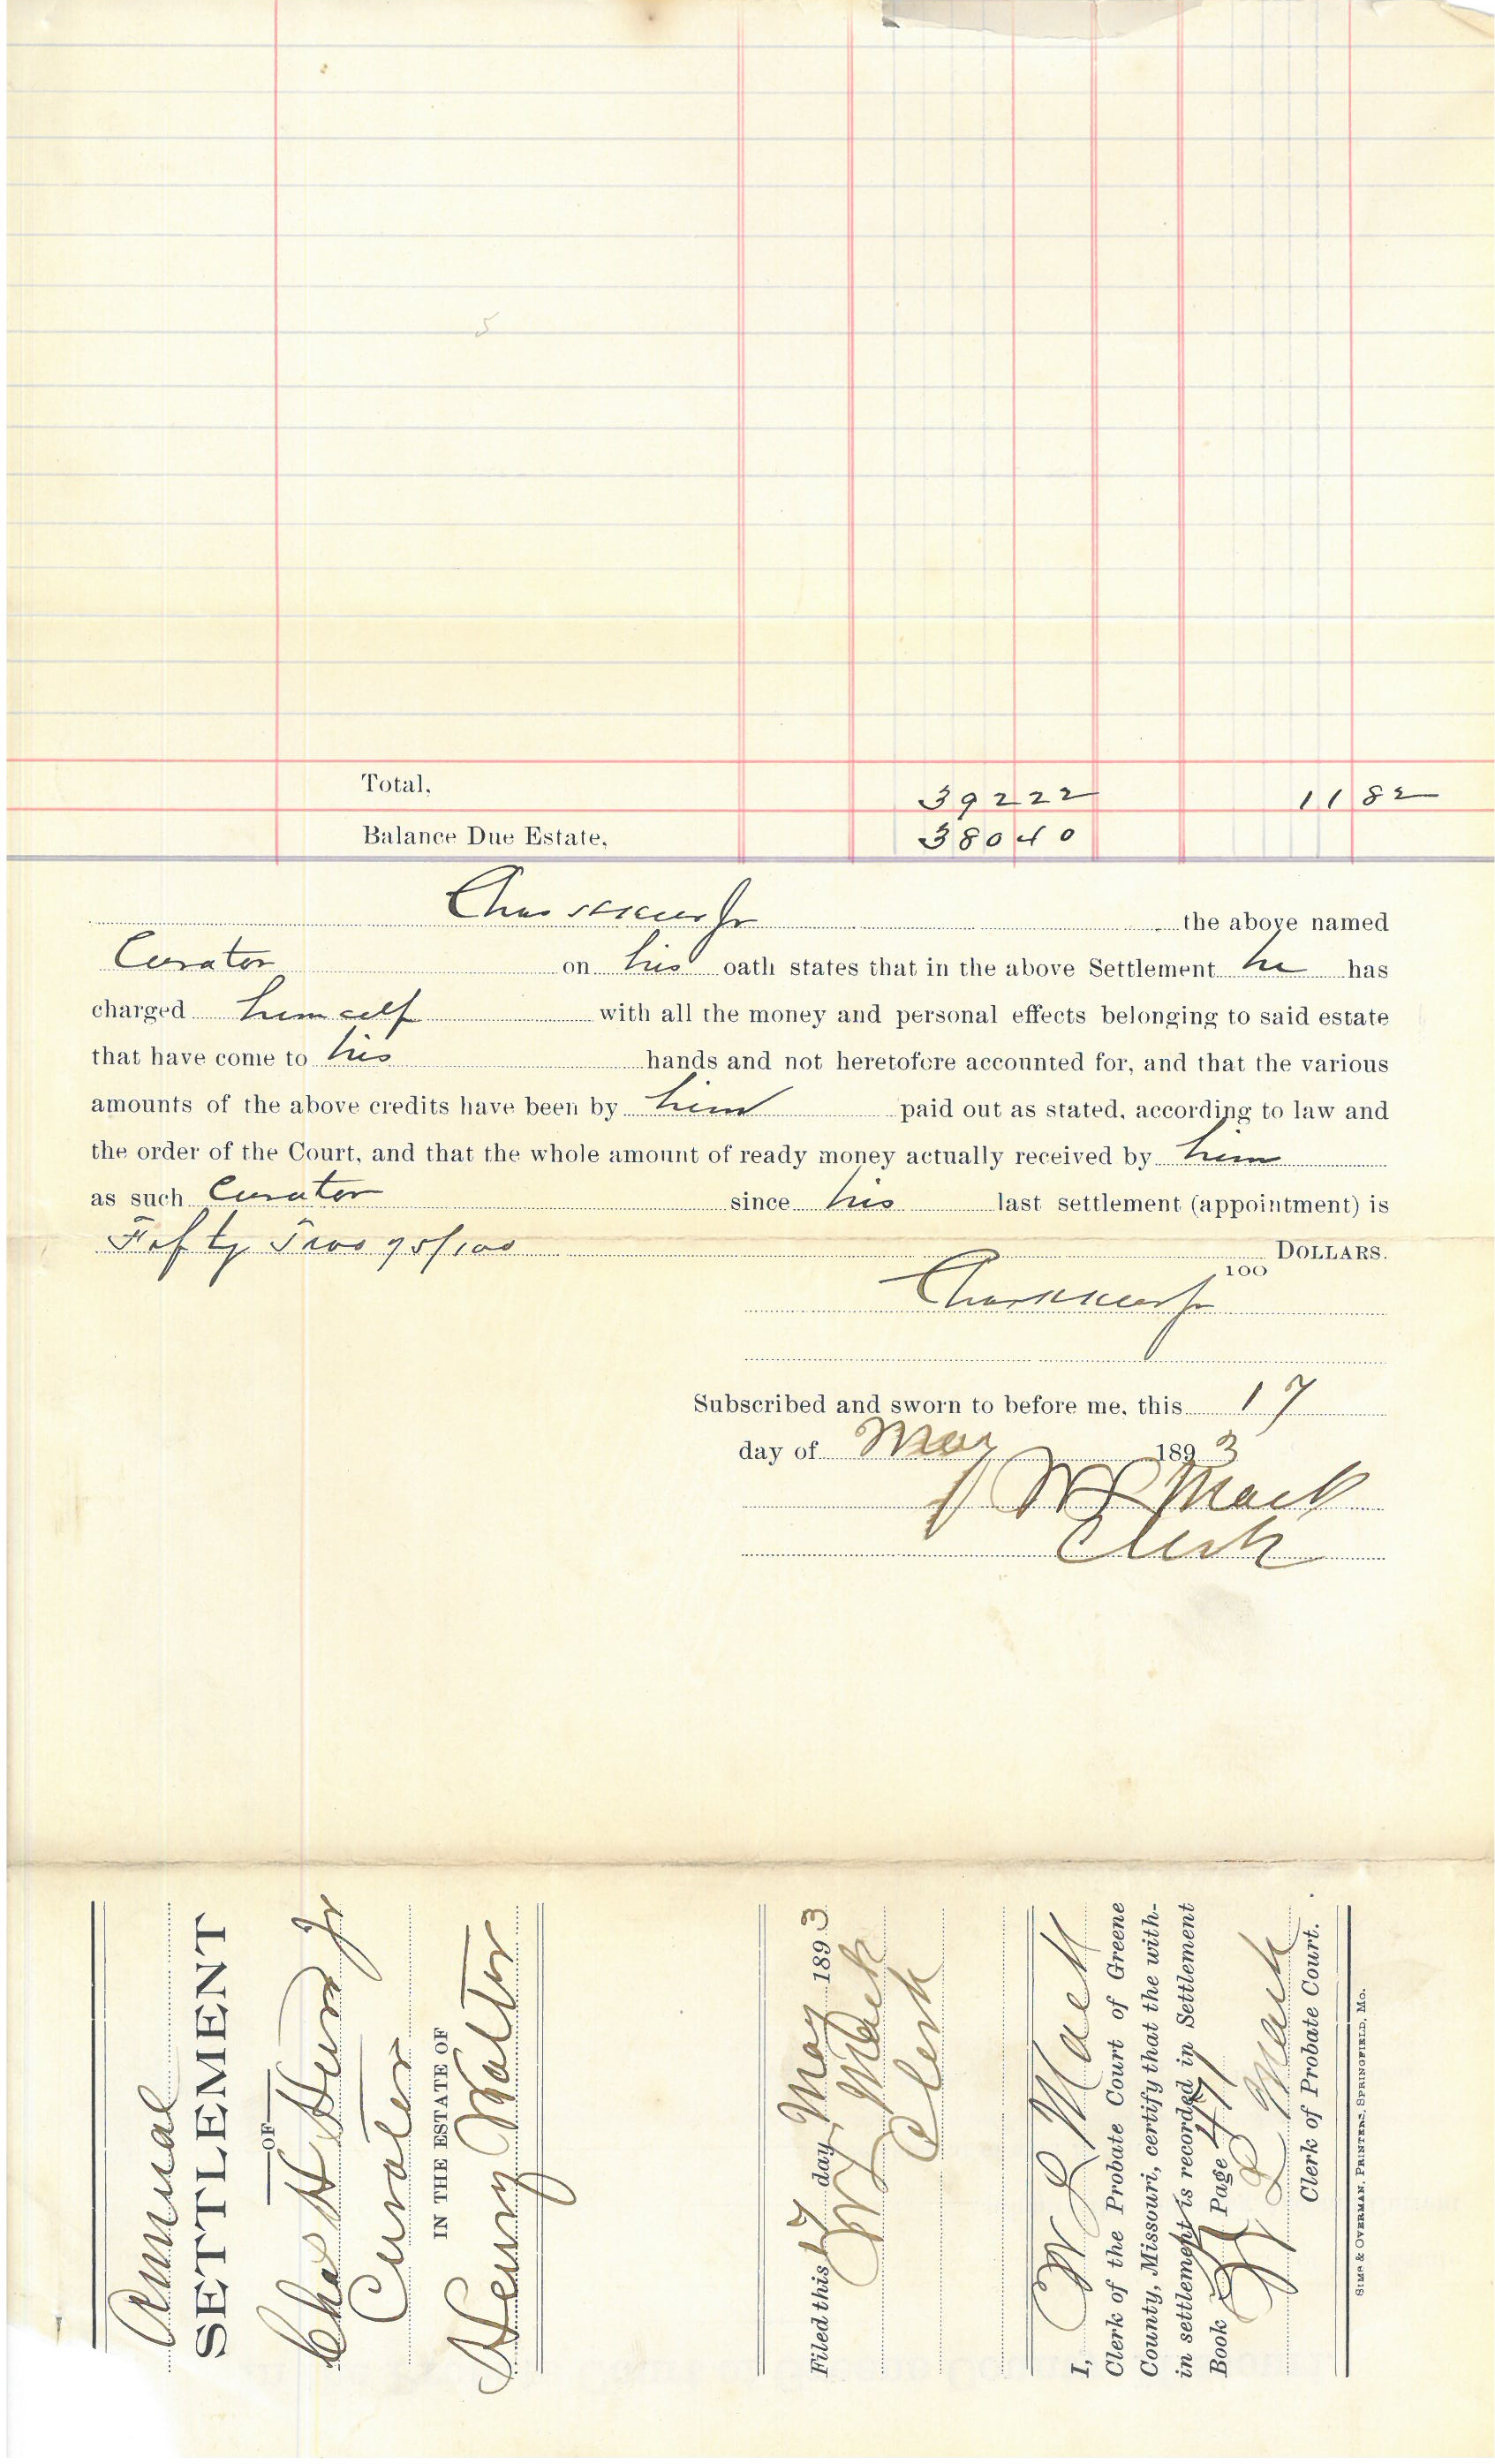 5
Total, 392 22 11 82
Balance Due Estate, 380 40
Chas H Heer Jr the above named
Curator on his oath states that in the above Settlement he has
charged himself with all the money and personal effects belonging to said estate
that have come to his hands and not heretofore accounted for, and that the various
amounts of the above credits have been by him paid out as stated, according to law and
the order of the Court, and that the whole amount of ready money actually received by him
as such Curator since his last settlement (appointment) is
Fifty Two 95/100 DOLLARS.
100
Chas H Heer Jr
Subscribed and sworn to before me, this 17
day of May 1893
W L Mack
Clerk
Annual
SETTLEMENT
OF
Chas H Heer Jr
Curator
IN THE ESTATE OF
Henry Walter
Filed this 17 day May 1893
W L Mack
Clerk
I, W L Mack
Clerk of the Probate Court of Greene
County, Missouri, certify that the with-
in settlement is recorded in Settlement
Book Page 471
W L Mack
Clerk of Probate Court.
SIMS & OVERMAN, PRINTERS, SPRINGFIELD, MO.